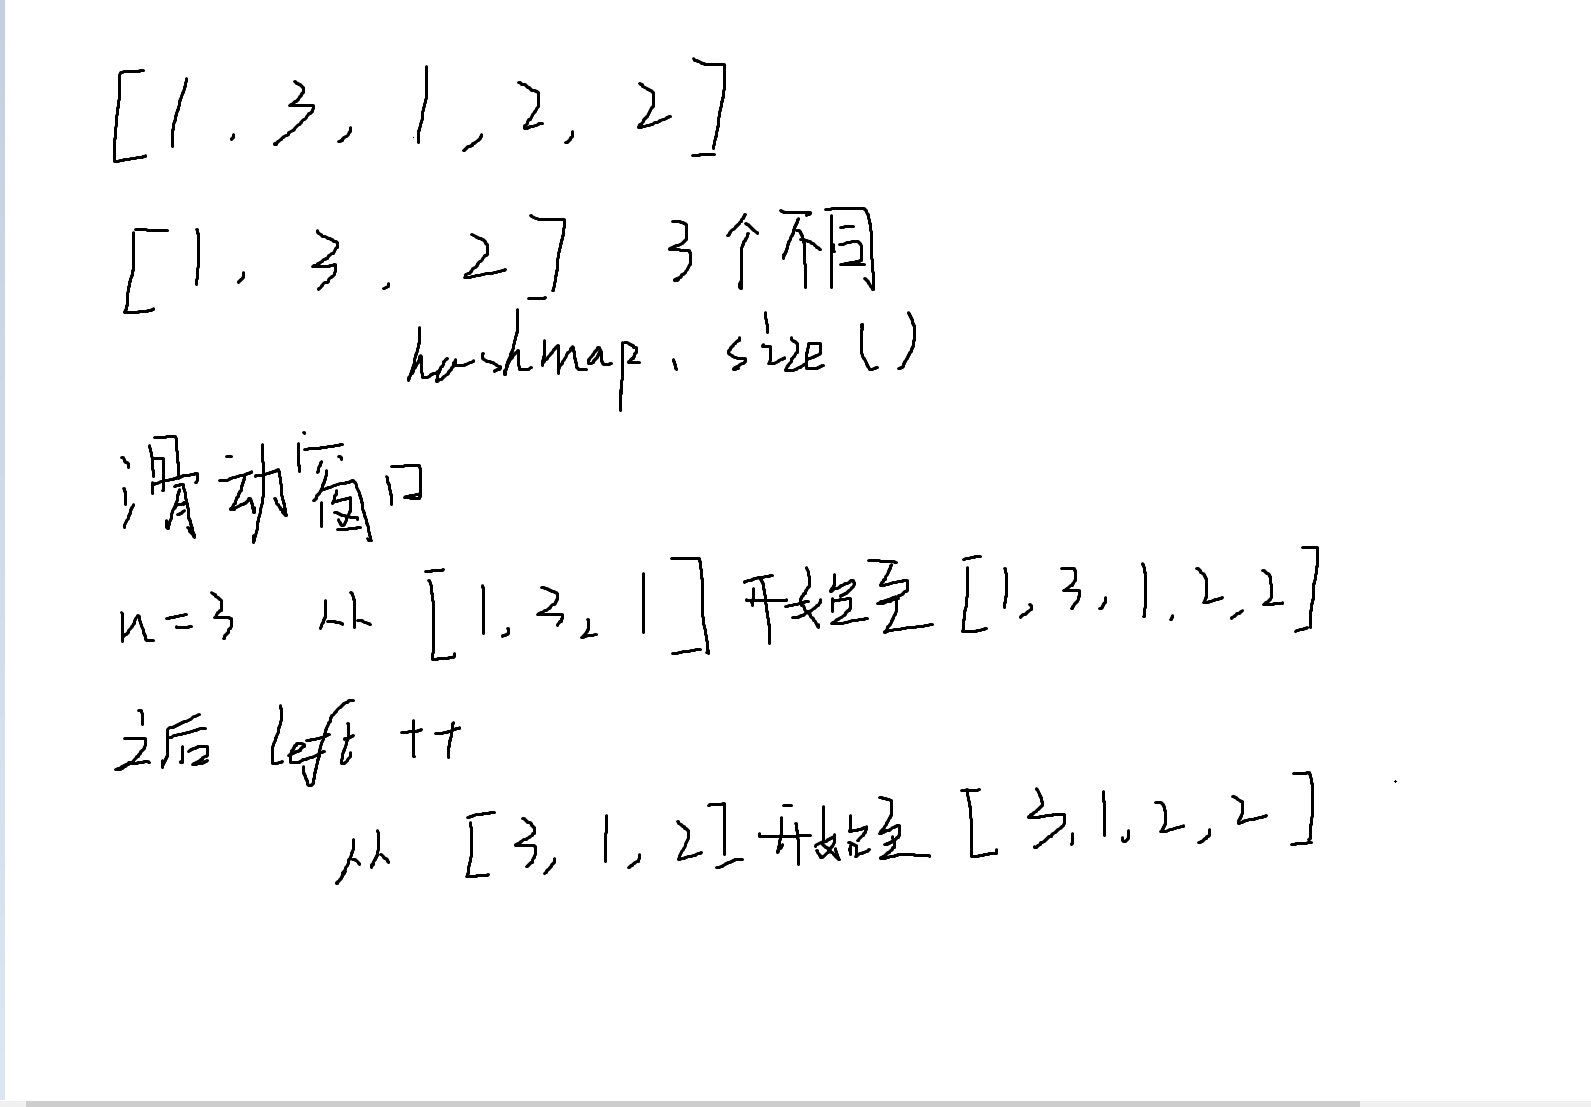 [1. 3, 1, 2, 2]
[1. 3. 2] 3个不同
hashmap. size()
滑动窗口
n=3 从 [1, 3, 1] 开始至 [1, 3, 1. 2, 2]
之后 left ++
从 [3, 1, 2] 开始至 [3, 1, 2, 2]